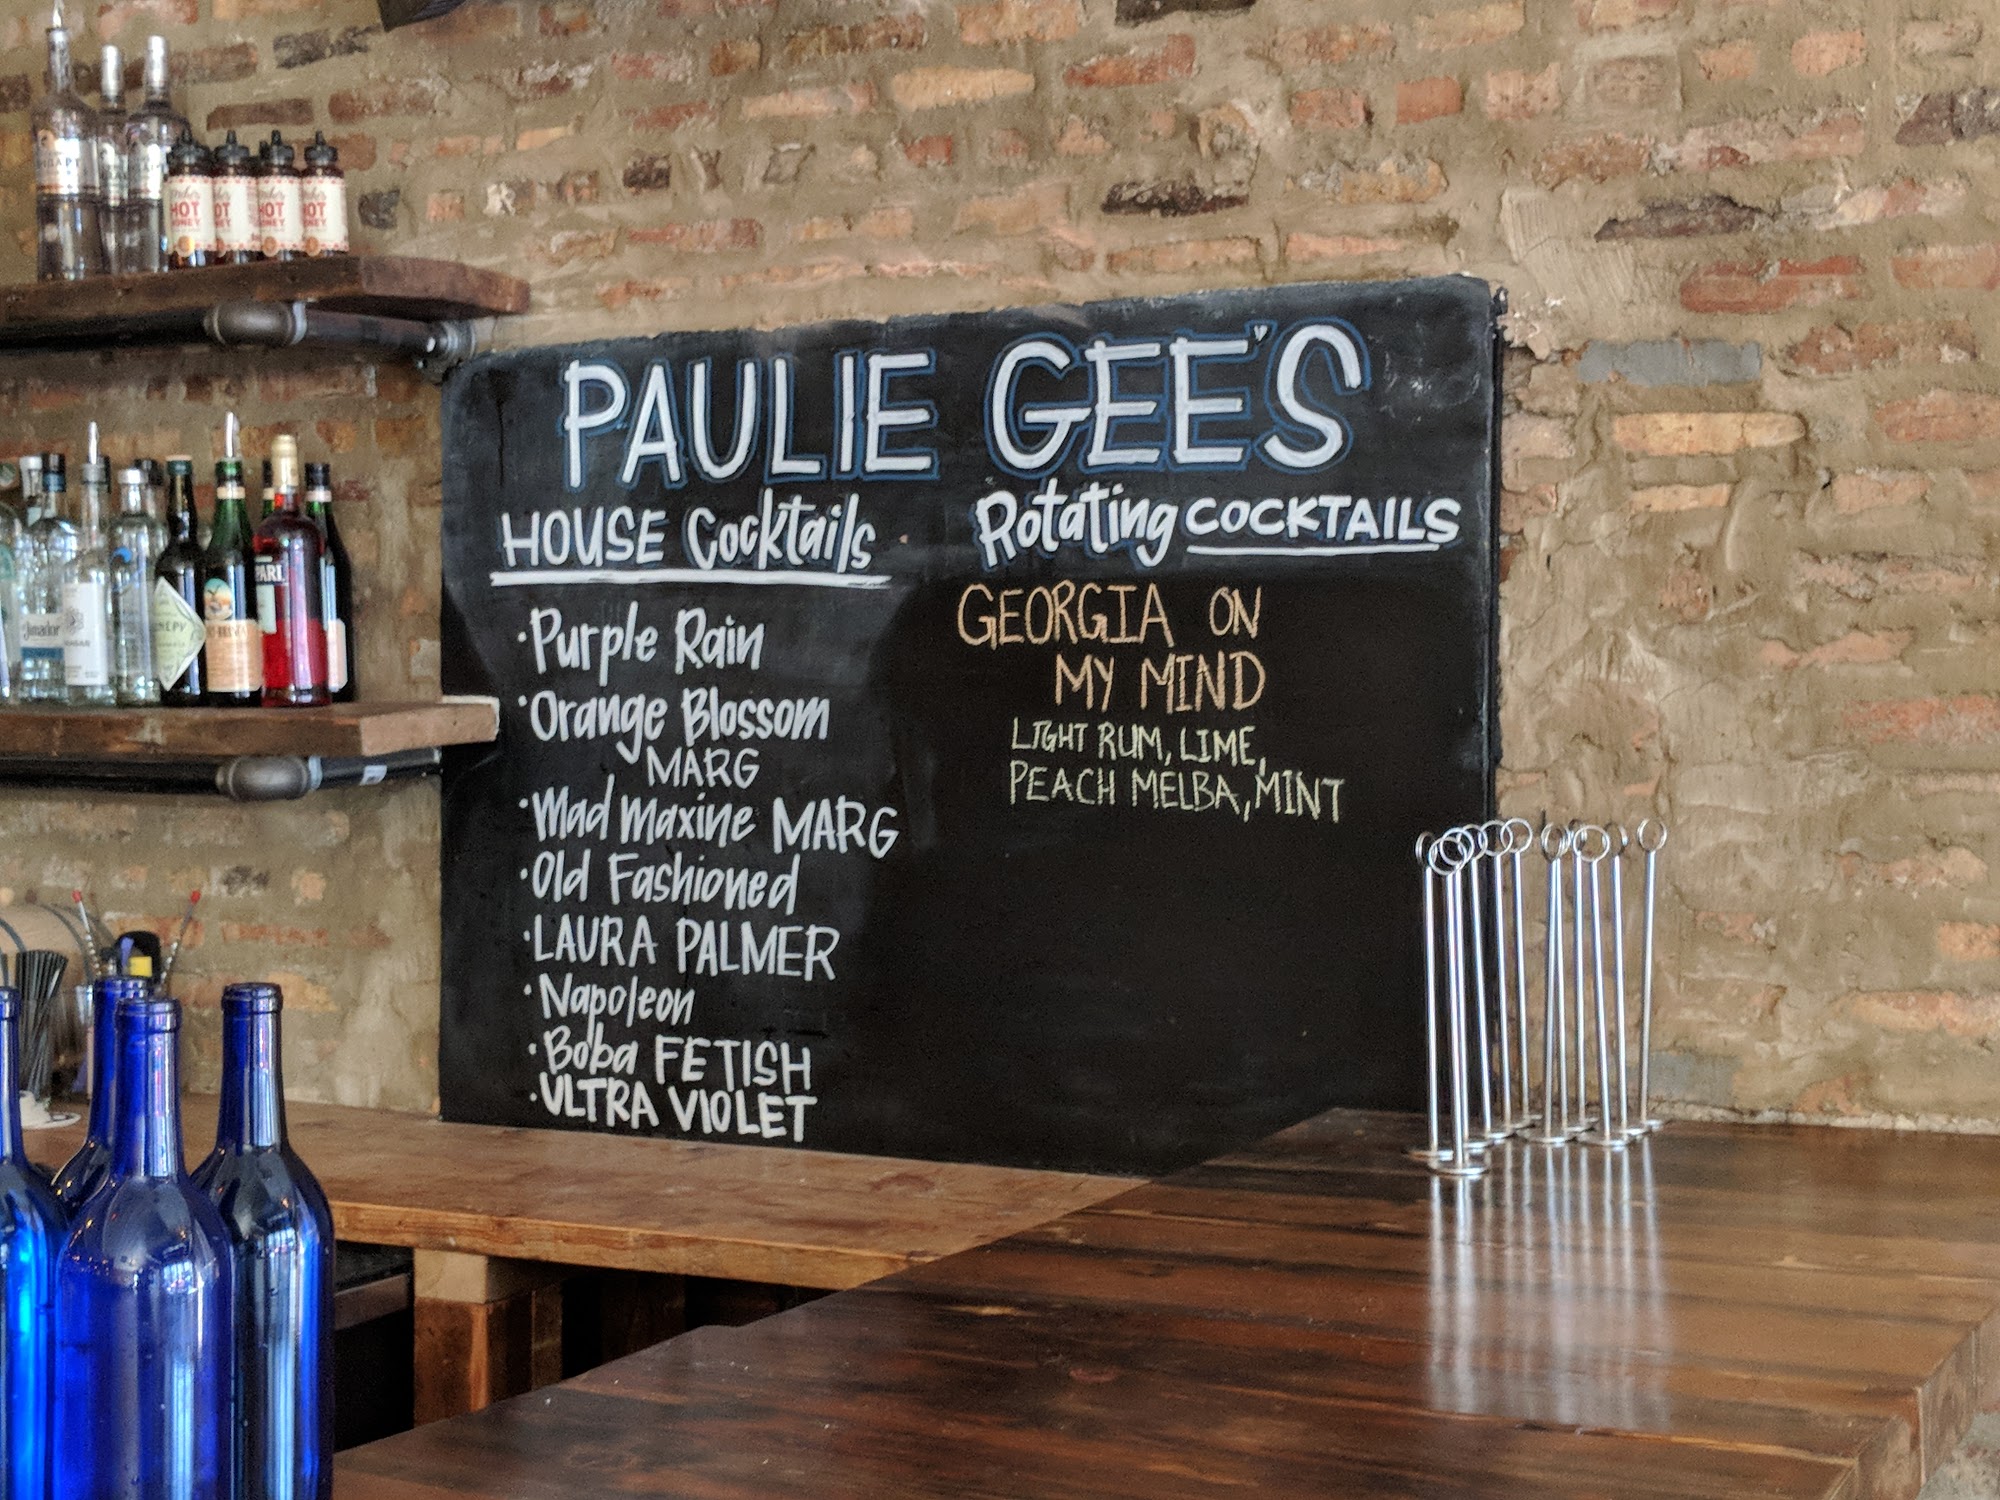 PAULIE GEE'S
HOUSE Cocktails
· Purple Rain
· Orange Blossom
MARG
· Mad Maxine MARG
· Old Fashioned
· LAURA PALMER
· Napoleon
· Boba FETISH
· ULTRA VIOLET
Rotating COCKTAILS
GEORGIA ON
MY MIND
LIGHT RUM, LIME,
PEACH MELBA, MINT
HOT
HONEY
HOT
HOT
HOT
HONEY